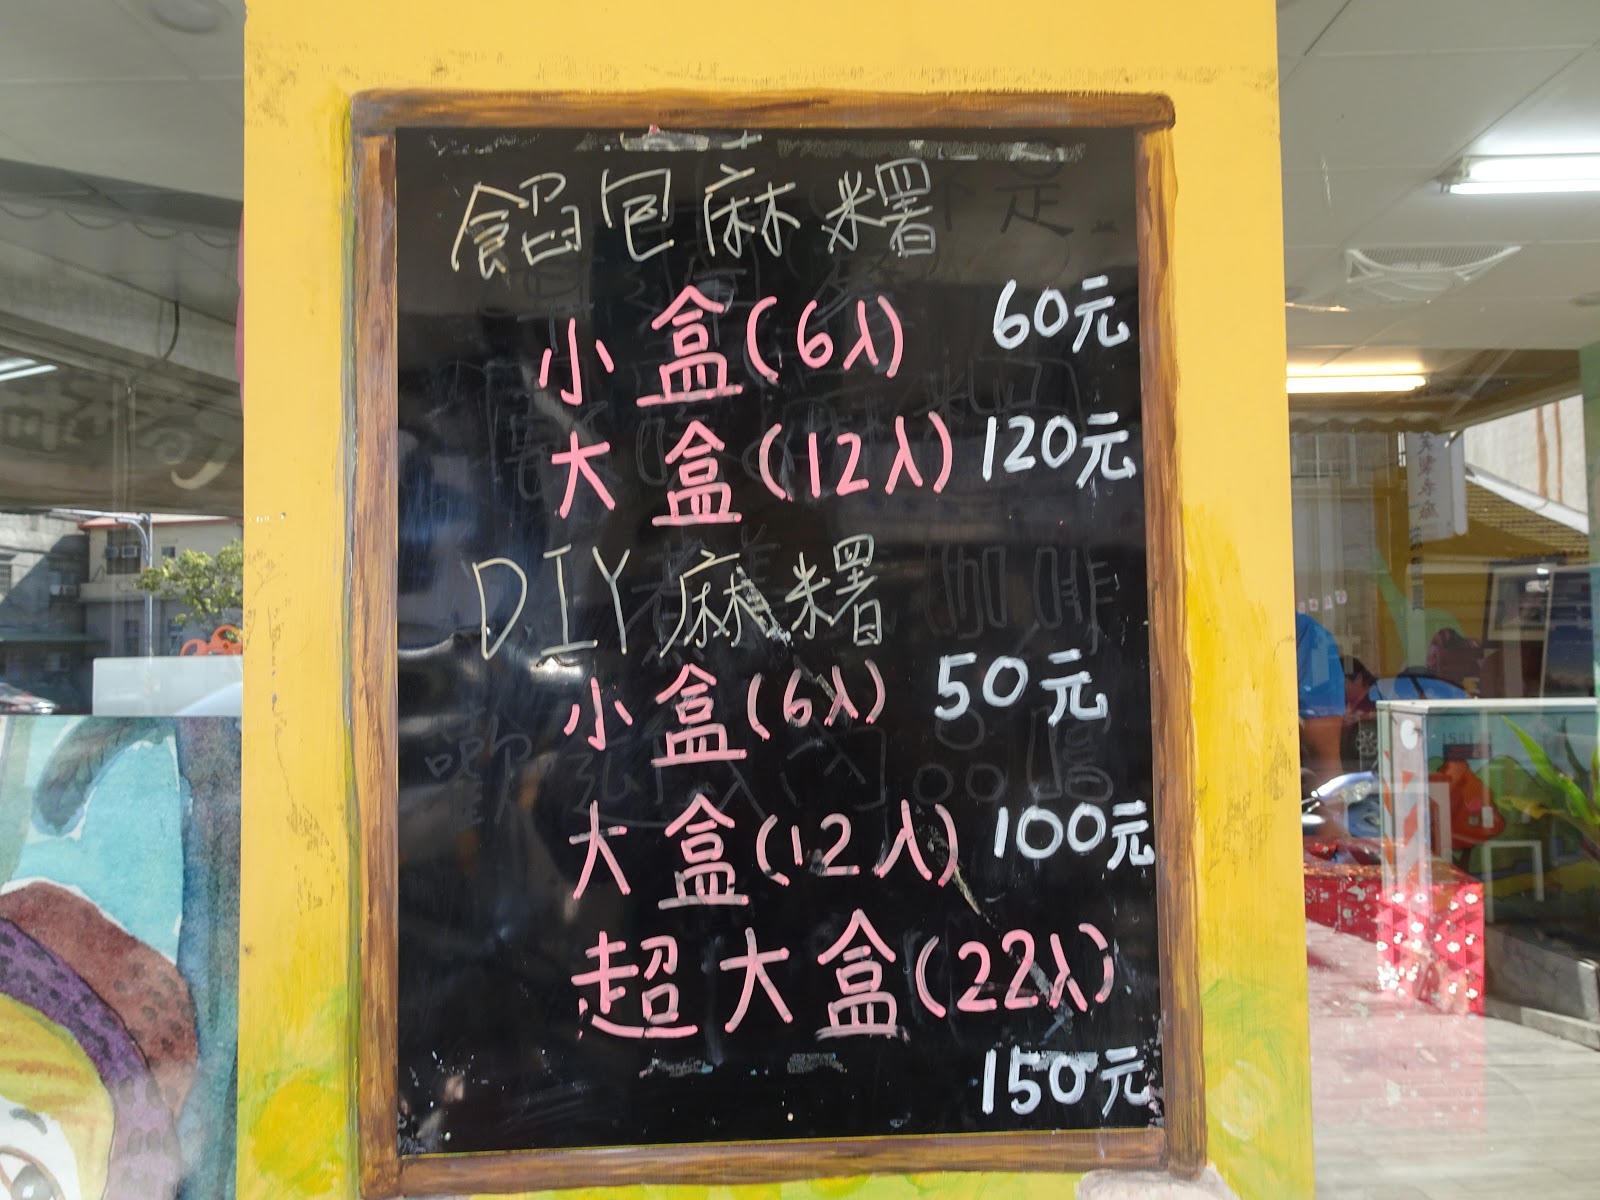 餡包麻糬
小盒(6入) 60元
大盒(12入) 120元
DIY麻糬
小盒(6入) 50元
大盒(12入) 100元
超大盒(22入)
150元